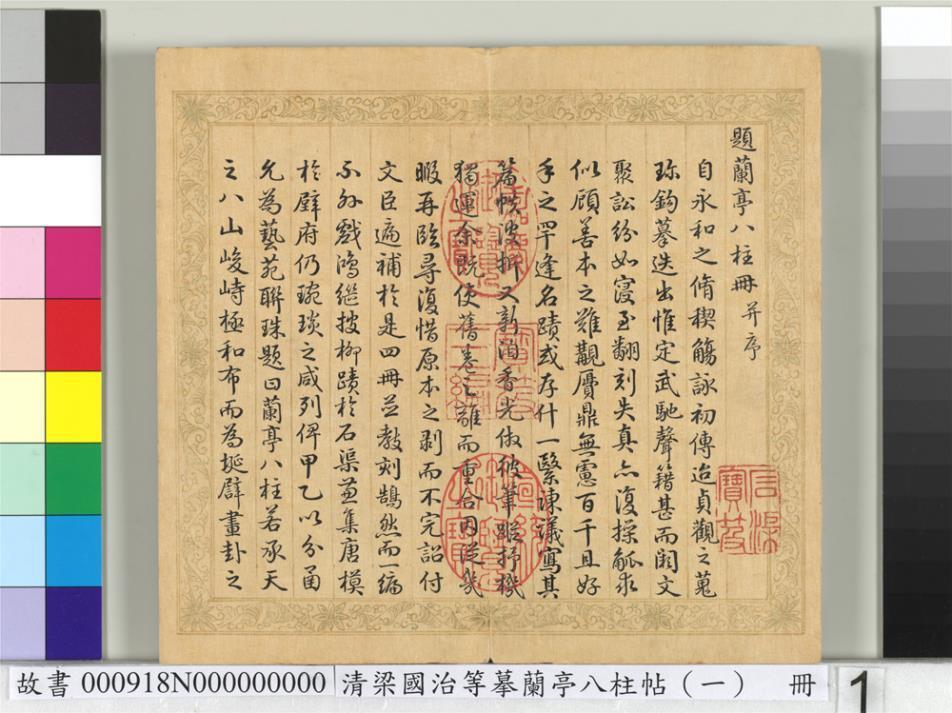 題蘭亭八柱冊 并序
自永和之脩禊觴詠初傳迨貞觀之蒐
珎鈎摹迭出惟定武馳聲籍甚而閎文
聚訟紛如寖至翻刻失真亦復操觚求
似顧善本之難觀贋鼎無慮百千且好
手之罕逢名蹟或存什一繄諫議寫其
篇帙波拆又新洎香光倣彼筆蹤抒機
獨運余既使舊卷之離而重合因從幾
暇再臨尋復惜原本之剥而不完詔付
文臣適補於是四冊並教刻鵠然而一編
不殊戲鴻繼搜柳蹟於石渠兼集唐模
於壁府仍琬琰之咸列俾甲乙以分函
允為藝苑聯珠題曰蘭亭八柱若承天
之八山峻峙極和布而為埏辟畫卦之
信天主人
寶笈
故書 000918N000000000 清梁國治等摹蘭亭八柱帖（一） 冊 1